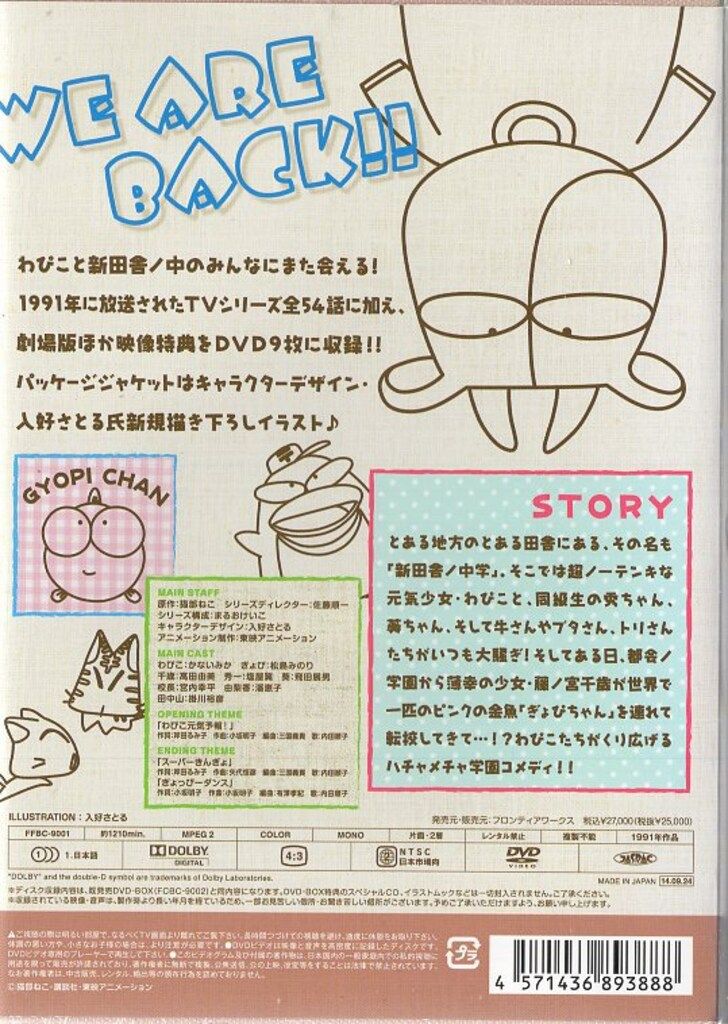 WE ARE
BACK!!
わぴこと新田舎ノ中のみんなにまた会える!
1991年に放送されたTVシリーズ全54話に加え、
劇場版ほか映像特典をDVD9枚に収録!!
パッケージジャケットはキャラクターデザイン・
入好さとる氏新規描き下ろしイラスト♪
GYOPI CHAN
STORY
とある地方のとある田舎にある、その名も
「新田舎ノ中学」。そこでは超ノーテンキな
元気少女・わぴこと、同級生の秀ちゃん、
葵ちゃん、そして牛さんやブタさん、トリさん
たちがいつも大騒ぎ!そしてある日、都会ノ
学園から薄幸の少女・藤ノ宮千歳が世界で
一匹のピンクの金魚「ぎょぴちゃん」を連れて
転校してきて…!?わぴこたちがくり広げる
ハチャメチャ学園コメディ!!
MAIN STAFF
原作:猫部ねこ シリーズディレクター:佐藤順一
シリーズ構成:まるおけいこ
キャラクターデザイン:入好さとる
アニメーション制作:東映アニメーション
MAIN CAST
わぴこ:かないみか ぎょぴ:松島みのり
千歳:高田由美 秀一:塩屋翼 葵:飛田展男
校長:宮内幸平 由梨香:潘恵子
田中山:掛川裕彦
OPENING THEME
「わぴこ元気予報!」
作詞:岸田るみ子 作曲:小坂明子 編曲:三宮義貴 歌:内田順子
ENDING THEME
「スーパーきんぎょ」
作詞:岸田るみ子 作曲:矢代恒彦 編曲:三宮義貴 歌:内田順子
「ぎょっぴーダンス」
作詞:小坂明子 作曲:小坂明子 編曲:有澤孝紀 歌:内田順子
ILLUSTRATION:入好さとる
発売元・販売元:フロンティアワークス 税込¥27,000(税抜¥25,000)
FFBC-9001 約1210min. MPEG 2 COLOR MONO 片面・2層 レンタル禁止 複製不能 1991年作品
1.日本語 DOLBY DIGITAL 4:3 2 NTSC 日本市場向 DVD VIDEO
"DOLBY" and the double-D symbol are trademarks of Dolby Laboratories.
MADE IN JAPAN 14.09.24
※ディスク収録内容は、既発売DVD-BOX(FCBC-9002)と同内容になります。DVD-BOX特典のスペシャルCD、イラストムックなどは一切封入されません。ご了承ください。
※収録されている映像・音声は、製作時より長い年月を経ているため、一部お見苦しい個所・お聞き苦しい個所がございます。予めご了承いただけますよう、お願い申し上げます。
©猫部ねこ・講談社・東映アニメーション
プラ
4 571436 893888